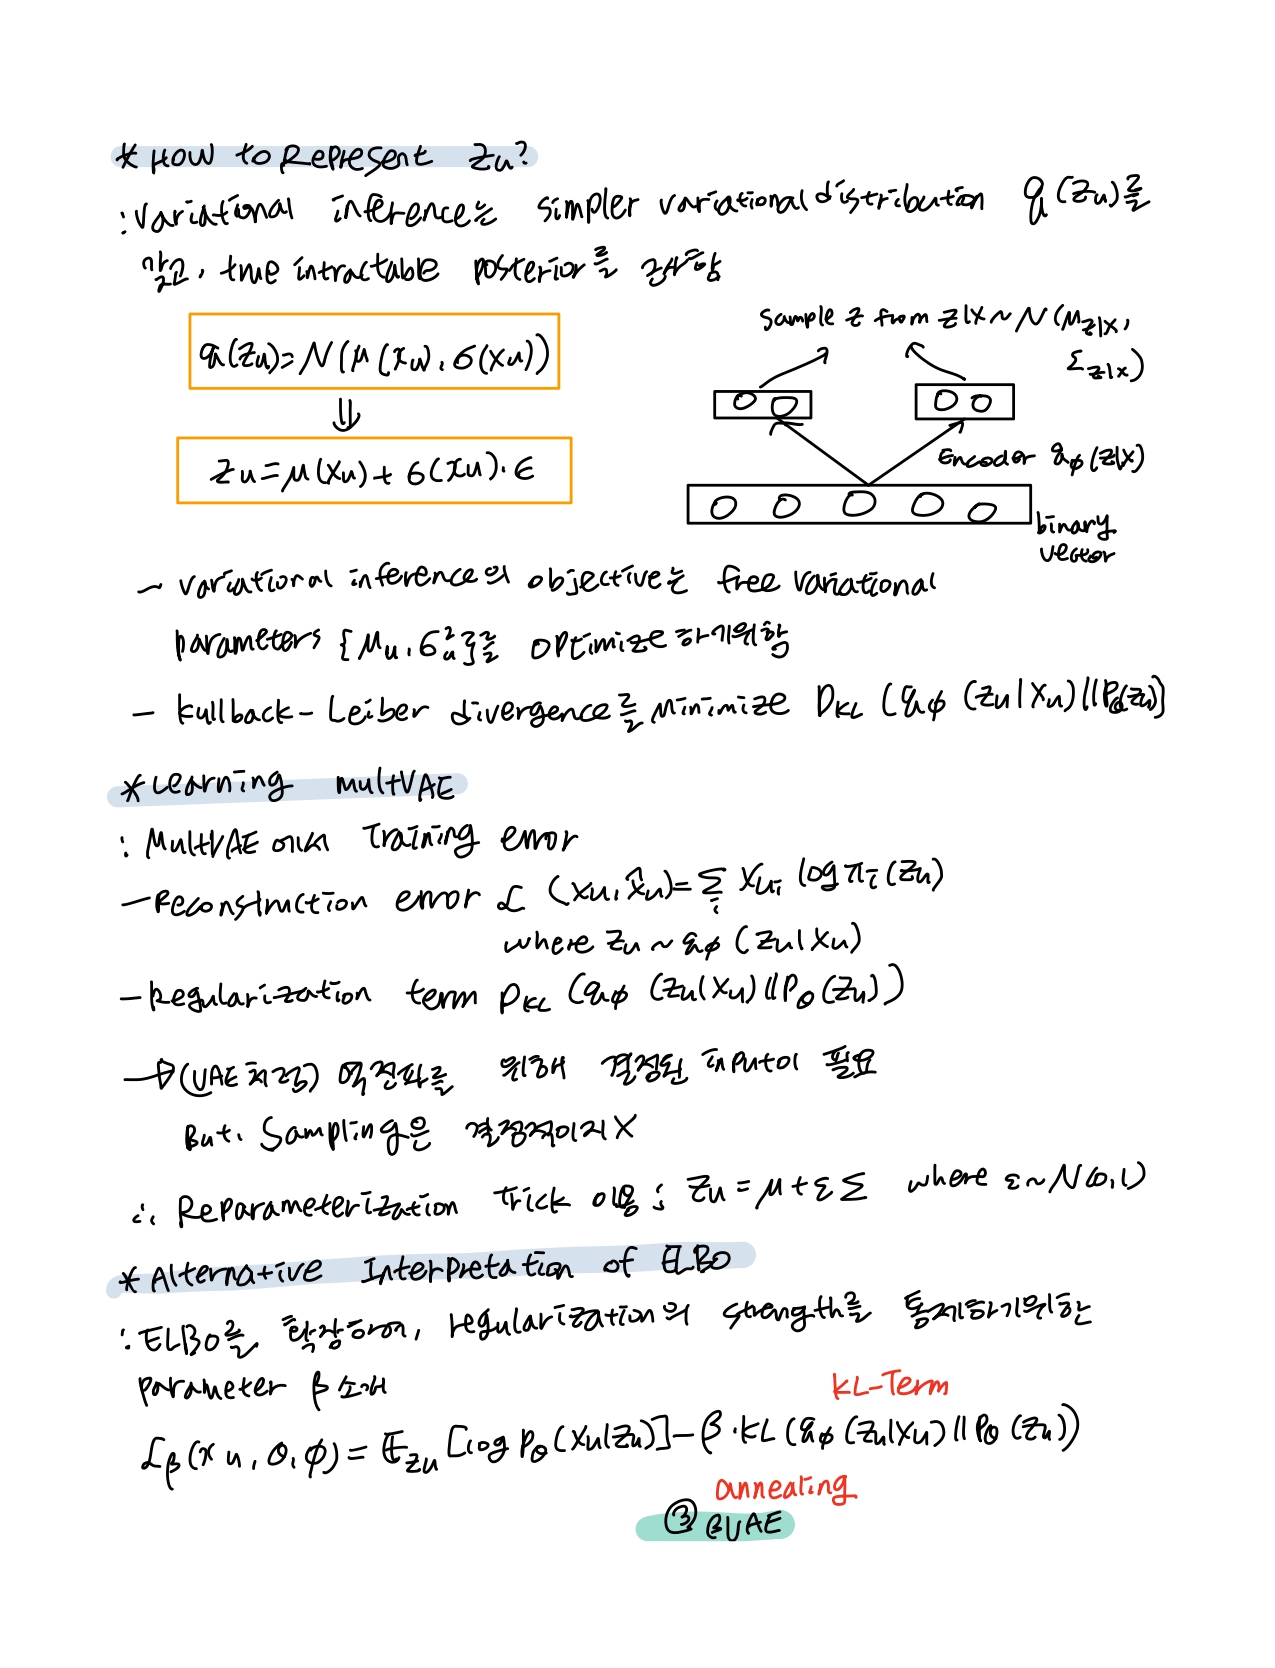 * How to Represent Zu?
: Variational inference는 simpler variational distribution q(Zu)를
갖고, true intractable posterior를 근사함
q(Zu) = N(μ(xu), σ(xu))
⇓
Zu = μ(xu) + σ(xu)·ϵ
Sample z from z|x ~ N(μz|x,
Σz|x)
Encoder qφ(z|x)
binary
vector
- variational inference의 objective는 free variational
parameters {μu, σ²u}를 optimize하기위함
- kullback-Leiber divergence를 minimize DKL (qφ (zu|xu) || Pθ(zu))
* Learning multVAE
: MultVAE에서 Training error
- Reconstruction error L (xu, x̂u) = Σi xui log πi (zu)
where zu ~ qφ (zu|xu)
- Regularization term DKL (qφ (zu|xu) || Pθ (zu))
→ (VAE처럼) 역전파를 위해 결정된 input이 필요
But, Sampling은 결정적이지 X
∴ Reparameterization Trick 이용 ; Zu = μ + εΣ where ε ~ N(0,1)
* Alternative Interpretation of ELBO
: ELBO를 확장하여, regularization의 strength를 통제하기위한
parameter β 소개
KL-Term
Lβ(xu, θ, φ) = Ezu [log Pθ(xu|zu)] - β·KL (qφ (zu|xu) || Pθ (zu))
annealing
③ βVAE